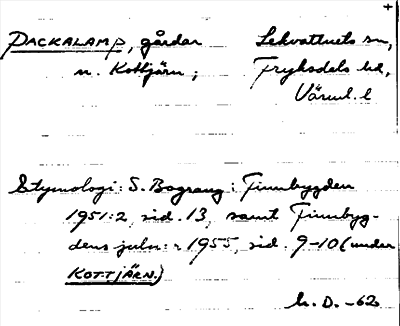 +
PACKALAMP, gårdar Lekvattnets sn,
n. Kottjärn; Fryksdals hd,
Värml. l
Etymologi: S. Bograng: Finnbygden
1951:2, sid. 13, samt Finnbyg-
dens juln:r 1955, sid. 9-10 (under
KOTTJÄRN.)
h. D. -62